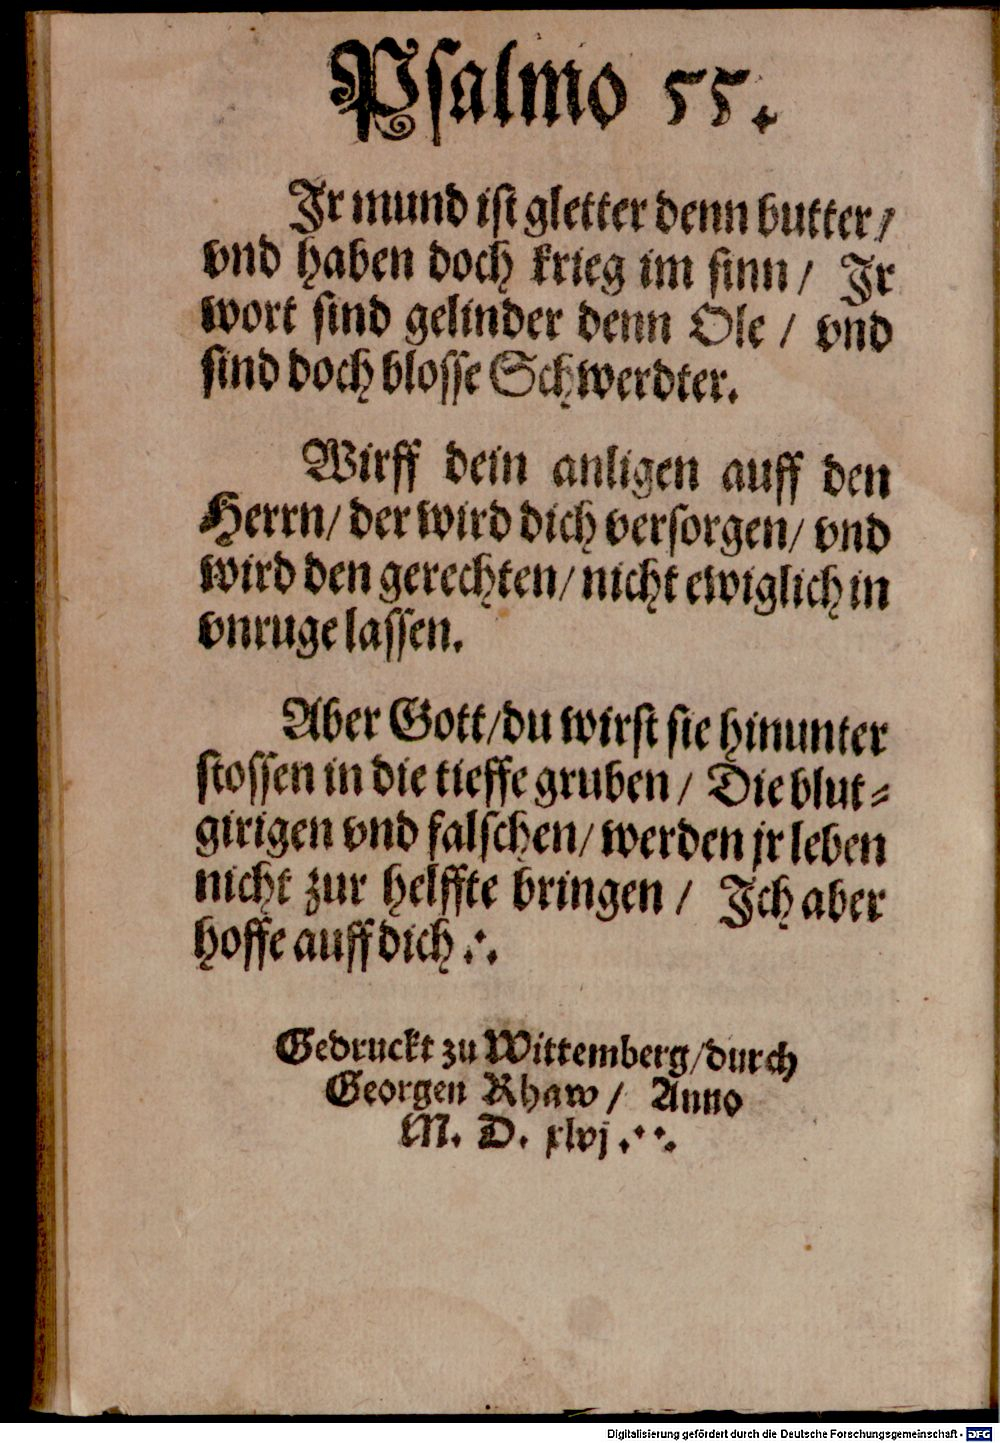 Psalmo 55.
Jr mund ist gletter denn butter/
vnd haben doch krieg im sinn/ Jr
wort sind gelinder denn Ole/ vnd
sind doch blosse Schwerdter.
Wirff dein anligen auff den
Herrn/ der wird dich versorgen/ vnd
wird den gerechten/ nicht ewiglich in
vnruge lassen.
Aber Gott/du wirst sie hinunter
stossen in die tieffe gruben/ Die blut-
girigen vnd falschen/ werden jr leben
nicht zur helffte bringen/ Jch aber
hoffe auff dich.
Gedruckt zu Wittemberg/durch
Georgen Rhaw/ Anno
M. D. xlvj.
Digitalisierung gefördert durch die Deutsche Forschungsgemeinschaft - DFG